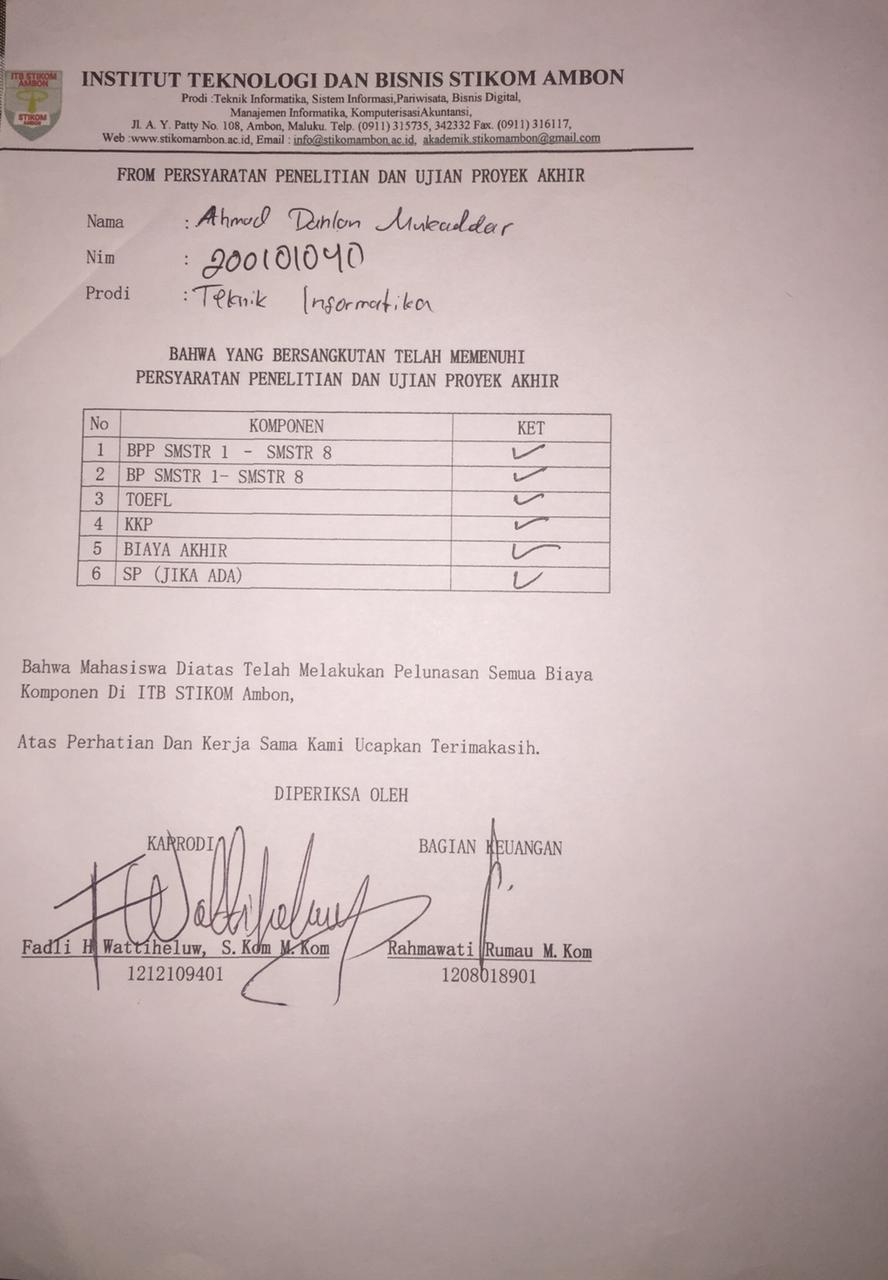 ITB STIKOM
AMBON
STIKOM
AMBON
INSTITUT TEKNOLOGI DAN BISNIS STIKOM AMBON
Prodi :Teknik Informatika, Sistem Informasi,Pariwisata, Bisnis Digital,
Manajemen Informatika, KomputerisasiAkuntansi,
Jl. A. Y. Patty No. 108, Ambon, Maluku. Telp. (0911) 315735, 342332 Fax. (0911) 316117,
Web :www.stikomambon.ac.id, Email : info@stikomambon.ac.id, akademik.stikomambon@gmail.com
FROM PERSYARATAN PENELITIAN DAN UJIAN PROYEK AKHIR
Nama : Ahmad Dahlan Mukaddar
Nim : 200101040
Prodi : Teknik Informatika
BAHWA YANG BERSANGKUTAN TELAH MEMENUHI
PERSYARATAN PENELITIAN DAN UJIAN PROYEK AKHIR
No KOMPONEN KET
1 BPP SMSTR 1 - SMSTR 8 ✓
2 BP SMSTR 1- SMSTR 8 ✓
3 TOEFL ✓
4 KKP ✓
5 BIAYA AKHIR ✓
6 SP (JIKA ADA) ✓
Bahwa Mahasiswa Diatas Telah Melakukan Pelunasan Semua Biaya
Komponen Di ITB STIKOM Ambon,
Atas Perhatian Dan Kerja Sama Kami Ucapkan Terimakasih.
DIPERIKSA OLEH
KAPRODI BAGIAN KEUANGAN
Fadli H Wattiheluw, S. Kom M. Kom Rahmawati Rumau M. Kom
1212109401 1208018901